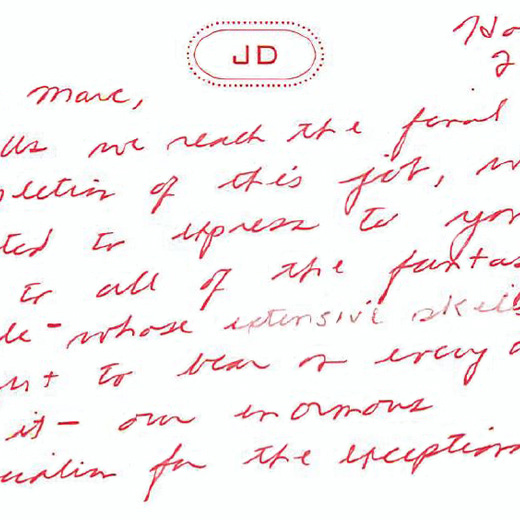 JD
Marc,
As we reach the final
pletion of this job, w
ted to express to you
to all of the fantas
le - whose extensive skills
to bear on every
it - our enormous
ciation for the exceptiona